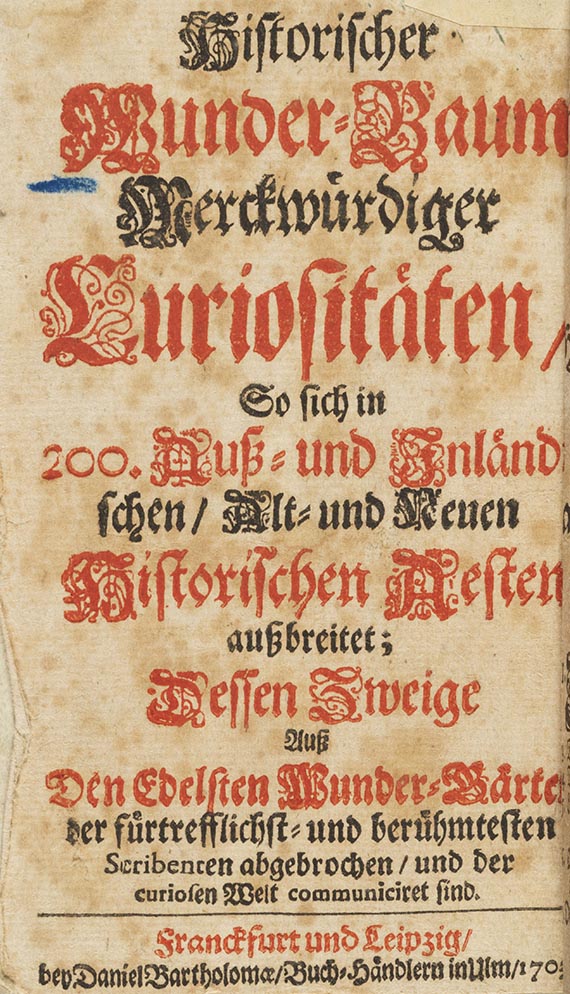 Historischer
Wunder-Baum
Merckwürdiger
Curiositäten/
So sich in
200. Auß- und Inländi
schen/ Alt- und Neuen
Historischen Aesten
außbreitet;
Dessen Zweige
Auß
Den Edelsten Wunder-Gärten
der fürtrefflichst- und berühmtesten
Scribenten abgebrochen/ und der
curiosen Welt communiciret sind.
Franckfurt und Leipzig/
bey Daniel Bartholomæ/ Buch-Händlern in Ulm/